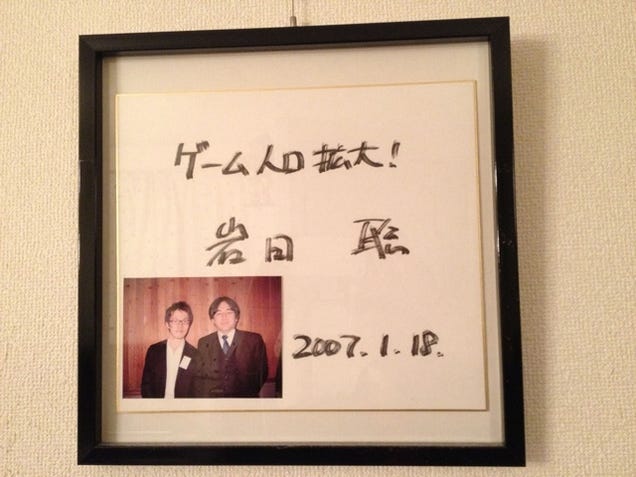 ゲーム人口拡大!
岩田 聡
2007.1.18.